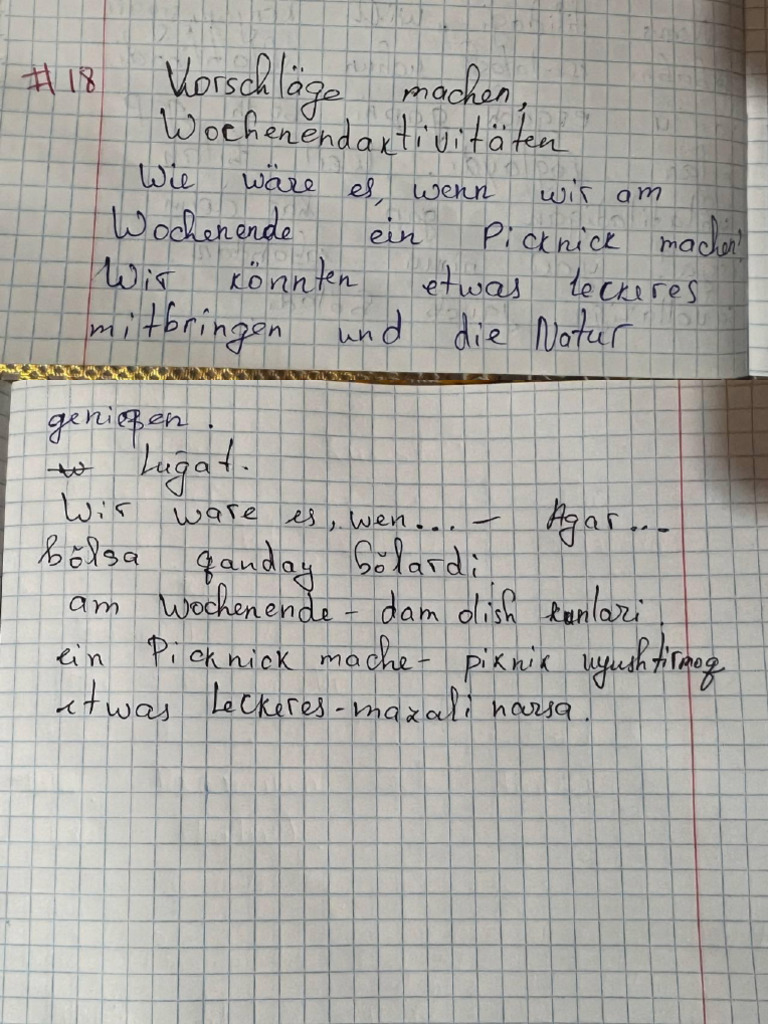 #18 Vorschläge machen,
Wochenendaktivitäten
Wie wäre es, wenn wir am
Wochenende ein Picknick machen?
Wir könnten etwas leckeres
mitbringen und die Natur
genießen.
Luğat.
Wir ware es, wen... - Agar...
bŏlsa qanday bŏlardi
am Wochenende - dam olish kunlari
ein Picknick mache - piknik uyushtirmoq
etwas Leckeres - mazali narsa.